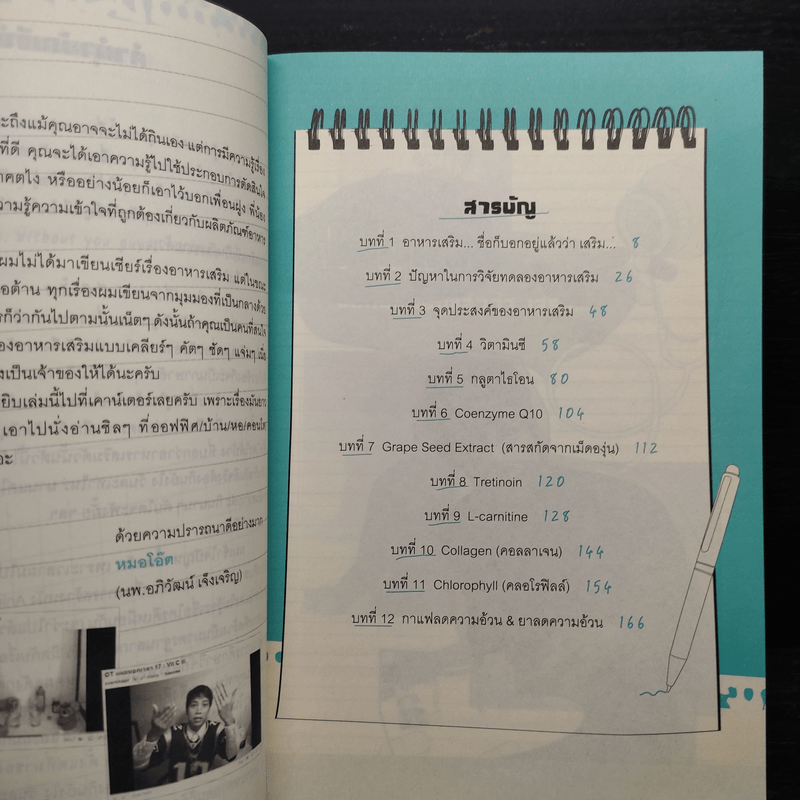 ะถึงแม้คุณอาจจะไม่ได้กินเอง แต่การมีความรู้เรื่อง
ที่ดี คุณจะได้เอาความรู้ไปใช้ประกอบการตัดสินใจ
าคตไง หรืออย่างน้อยก็เอาไว้บอกเพื่อนฝูง พี่น้อง
วามรู้ความเข้าใจที่ถูกต้องเกี่ยวกับผลิตภัณฑ์อาหาร
ผมไม่ได้มาเขียนเชียร์เรื่องอาหารเสริม แต่ในขณะ
อต้าน ทุกเรื่องผมเขียนจากมุมมองที่เป็นกลางด้วย
รก็ว่ากันไปตามนั้นเน็ตๆ ดังนั้นถ้าคุณเป็นคนที่สนใจ
องอาหารเสริมแบบเคลียร์ๆ คัตๆ ชัดๆ แจ่มๆ
งเป็นเจ้าของให้ได้นะครับ
ยิบเล่มนี้ไปที่เคาน์เตอร์เลยครับ เพราะเรื่องมันยาว
เอาไปนั่งอ่านชิลๆ ที่ออฟฟิศ/บ้าน/หอ/คอนโด
อะ
ด้วยความปรารถนาดีอย่างมาก
หมอโอ๊ต
(นพ.อภิวัฒน์ เจ็งเจริญ)
สารบัญ
บทที่ 1 อาหารเสริม... ชื่อก็บอกอยู่แล้วว่า เสริม... 8
บทที่ 2 ปัญหาในการวิจัยทดลองอาหารเสริม 26
บทที่ 3 จุดประสงค์ของอาหารเสริม 48
บทที่ 4 วิตามินซี 58
บทที่ 5 กลูตาไธโอน 80
บทที่ 6 Coenzyme Q10 104
บทที่ 7 Grape Seed Extract (สารสกัดจากเม็ดองุ่น) 112
บทที่ 8 Tretinoin 120
บทที่ 9 L-carnitine 128
บทที่ 10 Collagen (คอลลาเจน) 144
บทที่ 11 Chlorophyll (คลอโรฟิลล์) 154
บทที่ 12 กาแฟลดความอ้วน & ยาลดความอ้วน 166